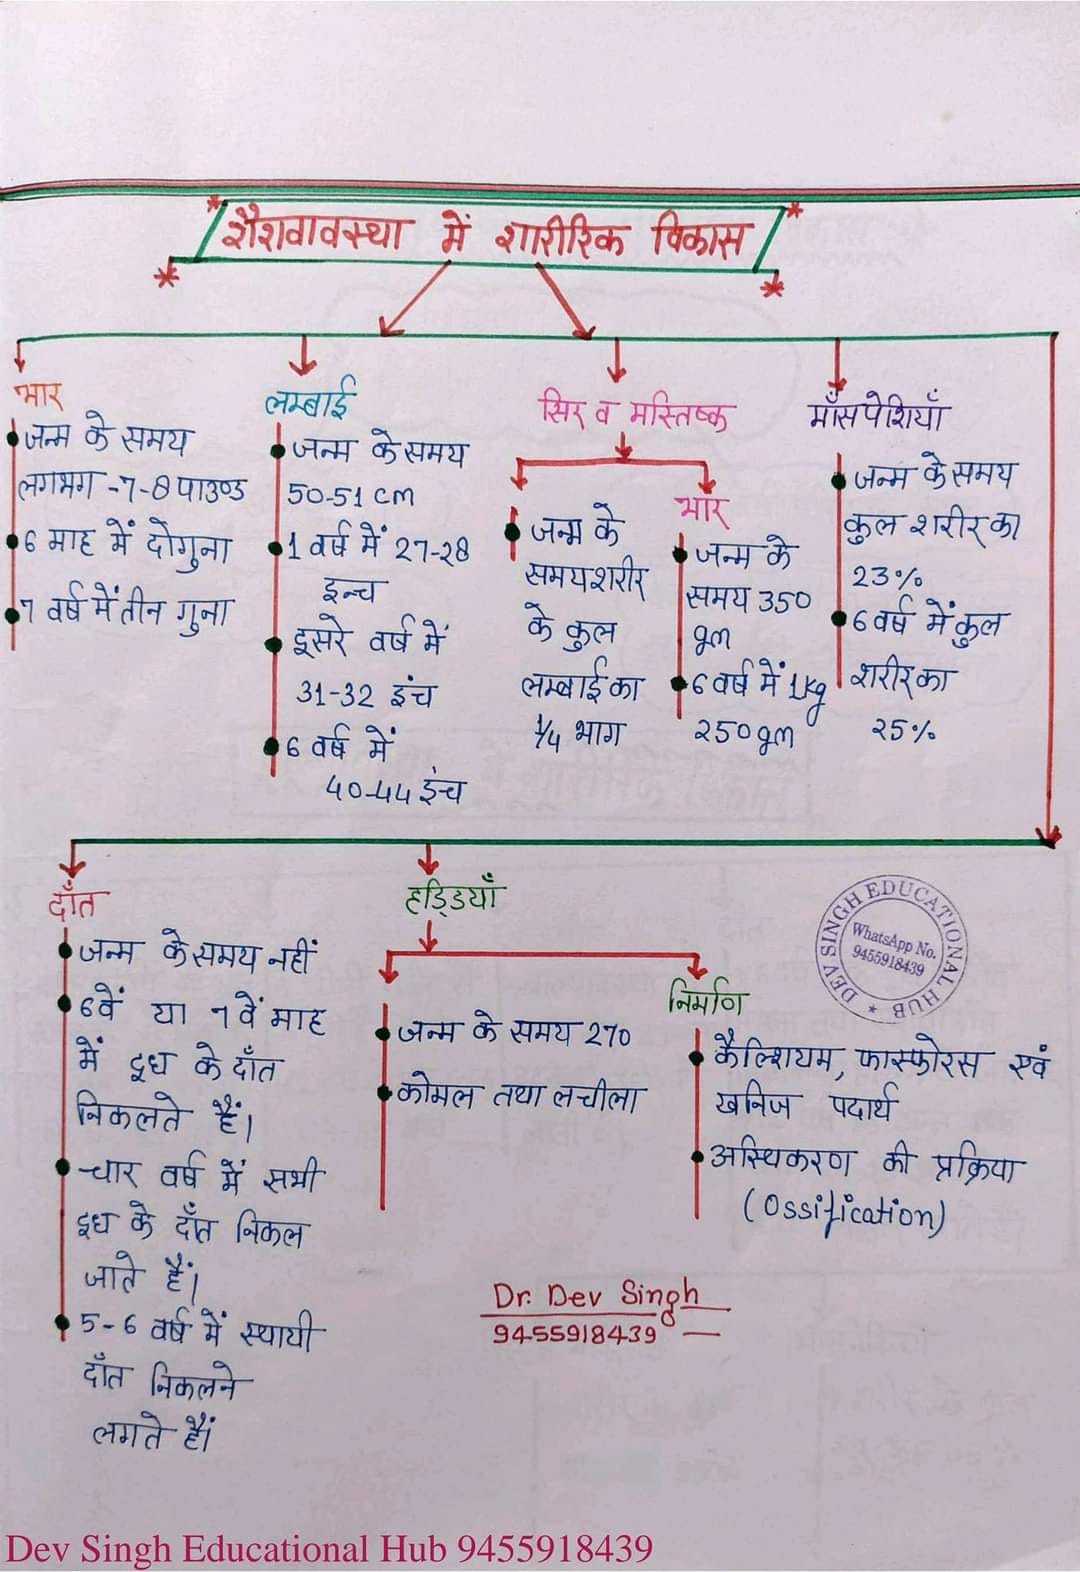 शैशवावस्था में शारीरिक विकास
भार
जन्म के समय
लगभग -7-8 पाउण्ड
6 माह में दोगुना
7 वर्ष में तीन गुना
लम्बाई
जन्म के समय
50-51 cm
1 वर्ष में 27-28
इन्च
दूसरे वर्ष में
31-32 इंच
6 वर्ष में
40-44 इंच
सिर व मस्तिष्क
जन्म के
समय शरीर
के कुल
लम्बाई का
1/4 भाग
भार
जन्म के
समय 350
gm
6 वर्ष में 1kg
250gm
माँसपेशियाँ
जन्म के समय
कुल शरीर का
23%
6 वर्ष में कुल
शरीर का
25%
दाँत
जन्म के समय नहीं
6वें या 7वें माह
में दूध के दाँत
निकलते हैं।
चार वर्ष में सभी
दूध के दाँत निकल
जाते हैं।
5-6 वर्ष में स्थायी
दाँत निकलने
लगते हैं।
हड्डियाँ
जन्म के समय 270
कोमल तथा लचीला
निर्माण
कैल्शियम, फास्फोरस एवं
खनिज पदार्थ
अस्थिकरण की प्रक्रिया
(Ossification)
DEV SINGH EDUCATIONAL HUB
WhatsApp No.
9455918439
Dr. Dev Singh
9455918439
Dev Singh Educational Hub 9455918439